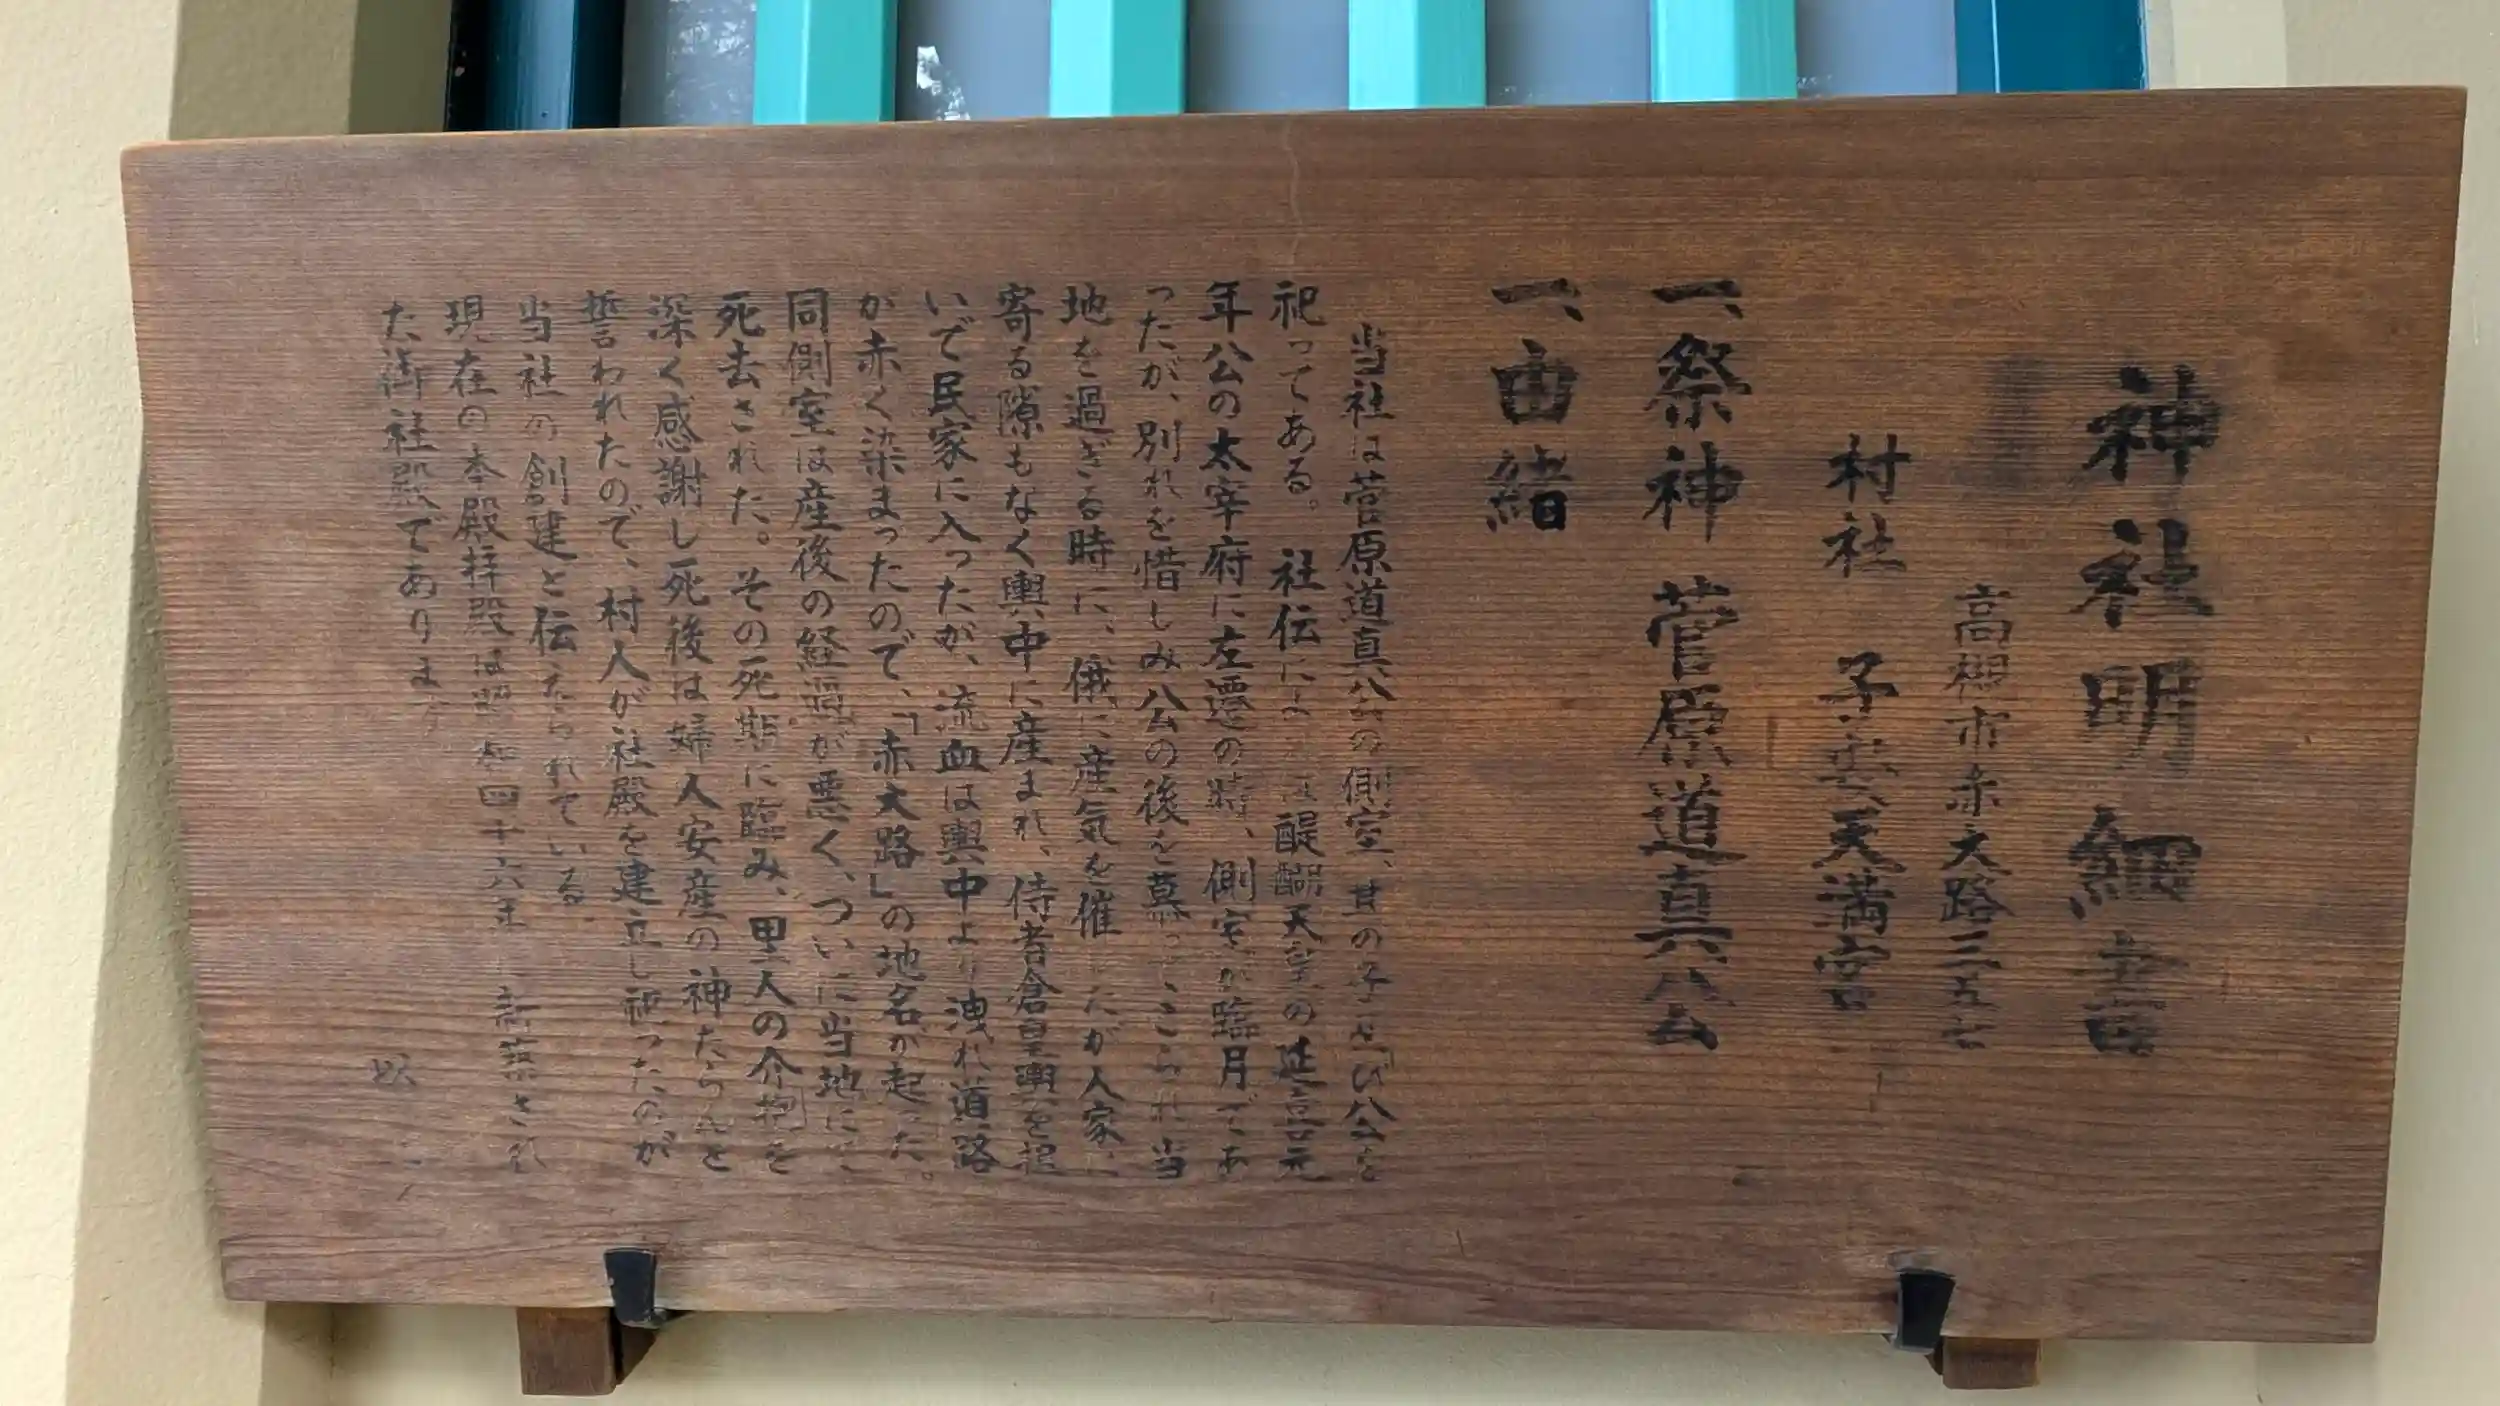 神社明細書
高槻市赤大路三五七
村社 子安天満宮
一、祭神 菅原道真公
一、由緒
当社は菅原道真公の側室、其の子及び公を
祀ってある。社伝によれば醍醐天皇の延喜元
年公の太宰府に左遷の時、側室が臨月であ
ったが、別れを惜しみ公の後を慕ってこられ当
地を過ぎる時に、俄に産気を催したが人家に
寄る隙もなく輿中に産まれ、侍者倉皇輿を担
いで民家に入ったが、流血は輿中より洩れ道路
が赤く染まったので、「赤大路」の地名が起った。
同側室は産後の経過が悪く、ついに当地にて
死去された。その死期に臨み、里人の介抱を
深く感謝し死後は婦人安産の神たらんと
誓われたので、村人が社殿を建立し祀ったのが
当社の創建と伝えられている。
現在の本殿拝殿は昭和四十六年 新築され
た御社殿であります